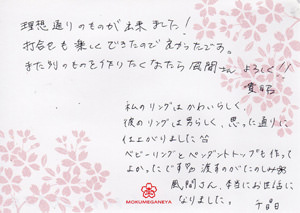 理想通りのものが出来ました!
打合せも楽しくできたのでよかったです。
また別のものを作りたくなったら風間さんよろしく!!
私のリングはかわいらしく、
彼のリングは男らしく、思った通りに
仕上がりました
ベビーリングとペンダントトップも作って
よかったです 渡すのがたのしみ
風間さん、本当にお世話に
なりました。
MOKUMEGANEYA